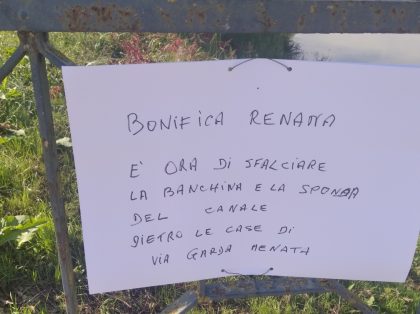 BONIFICA RENANA
E' ORA DI SFALCIARE
LA BANCHINA E LA SPONDA
DEL CANALE
DIETRO LE CASE DI
VIA GARDA RENATA